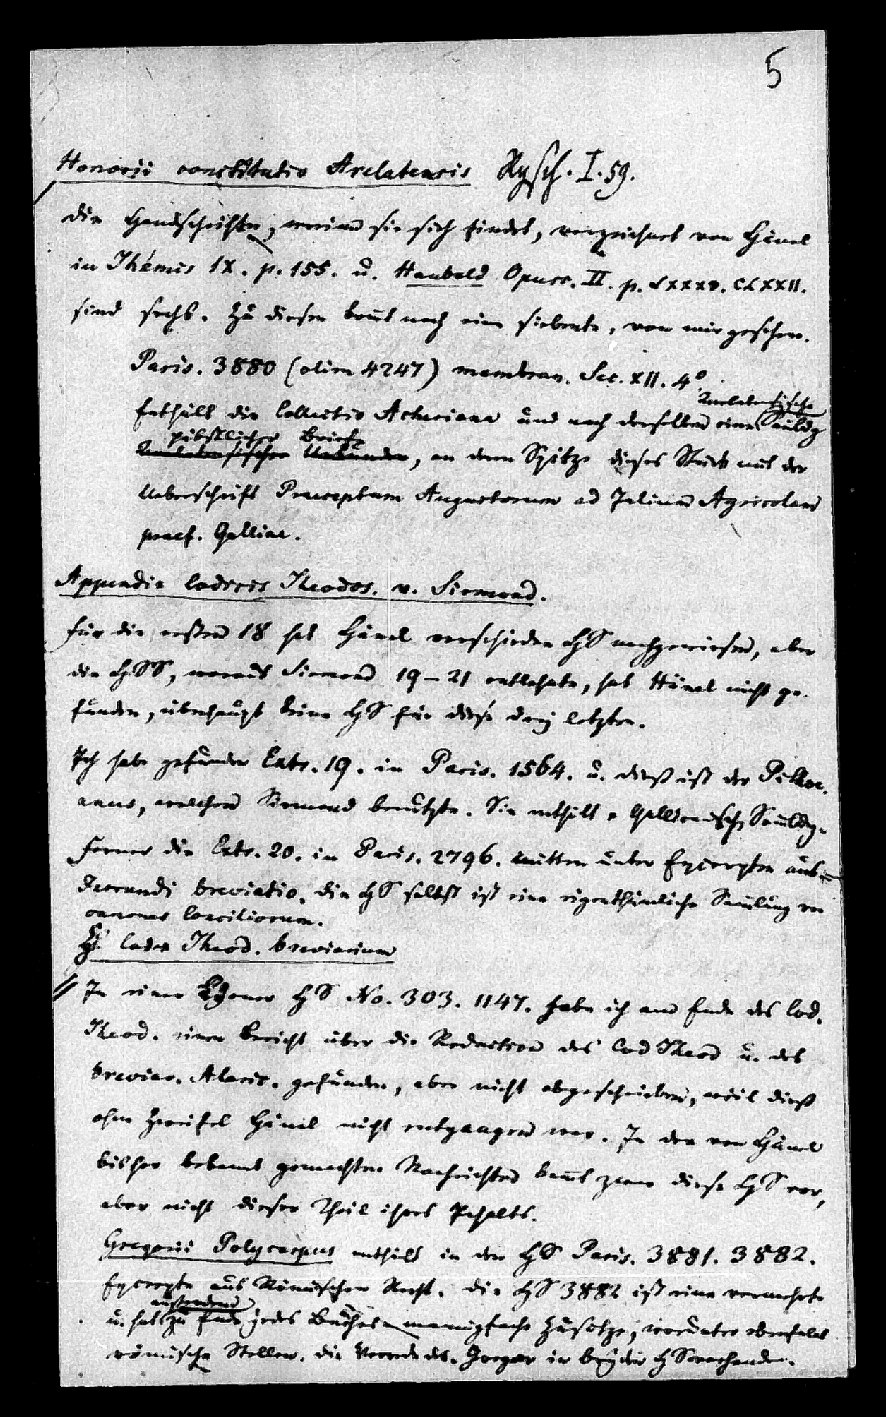 5
Honorii constitutio Arelatensis Rgsch. I. 59.
Die Handschriften, worin sie sich findet, verzeichnet von Hänel
in Thémis IX. p. 155. u. Haubold Opusc. II. p. LXXXV. CLXXII.
sind sechs. Zu diesen kommt noch eine siebente, von mir gesehen.
Paris. 3880 (olim 4247) membran. Sec. XII. 4°.
Enthält die Collectio Acheriana und nach derselben eine Samlg
päbstlicher Briefe
, an deren Spitze dieses Stück mit der
Ueberschrift Praeceptum Augustorum ad Julium Agricolam
praef. Galliae.
Appendix Codicis Theodos. v. Sirmond.
Für die ersten 18 hat Hänel verschiedene HS nachgewiesen, aber
die HSS, woraus Sirmond 19-21 entlehnte, hat Hänel nicht ge-
funden, überhaupt keine HS für diese drey letzten.
Ich habe gefunden Extr. 19. in Paris. 1564. u. dieß ist der Pithoe-
anus, welchen Sirmond benutzte. Sie enthält e. Gallicanische Samlg.
Ferner die Extr. 20. in Paris. 2796. mitten unter Excerpten aus
Ferrandi breviatio. Die HS selbst ist eine eigenthümliche Samlung von
canones Conciliorum.
Zu Codex Theod. breviarium
In einer HS No. 303. 1147. habe ich am Ende des Cod.
Theod. einen Bericht über die Redaction des Cod Theod u. des
breviar. Alaric. gefunden, aber nicht abgeschrieben, weil dieß
ohne Zweifel Hänel nicht entgangen war. In den von Hänel
bisher bekannt gemachten Nachrichten kommt zwar diese HS vor,
aber nicht dieser Theil ihres Inhalts.
Gregorii Polycarpus enthält in den HS Paris. 3881. 3882.
Excerpte aus Römischem Recht. Die HS 3882 ist eine vermehrte
u. hat zu Ende jedes Buches mannigfache Zusätze, worunter ebenfalls
römische Stellen. Die Vorrede des Gregor in beyden HS vorhanden.